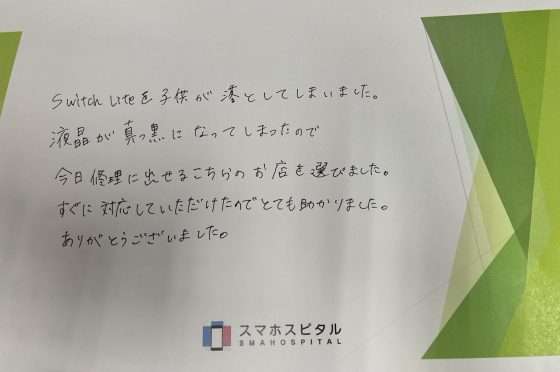 Switch Liteを子供が落としてしまいました。
液晶が真っ黒になってしまったので
今日修理に出せるこちらのお店を選びました。
すぐに対応していただけたのでとても助かりました。
ありがとうございました。
スマホスピタル
SMAHOSPITAL